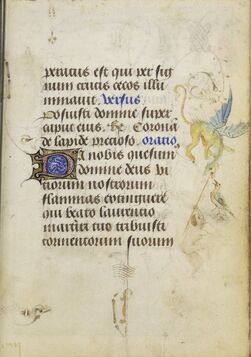 peratus est qui per sig
num crucis cecos illu
minauit. Versus
Posuisti domine super
caput eius. R Coronā
de lapide precioso. oratio
Da nobis quesum
domine deus vi
tiorum nostrorum
flammas extinguere
qui beato laurentio
martiri tuo tribuisti
tormentorum suorum